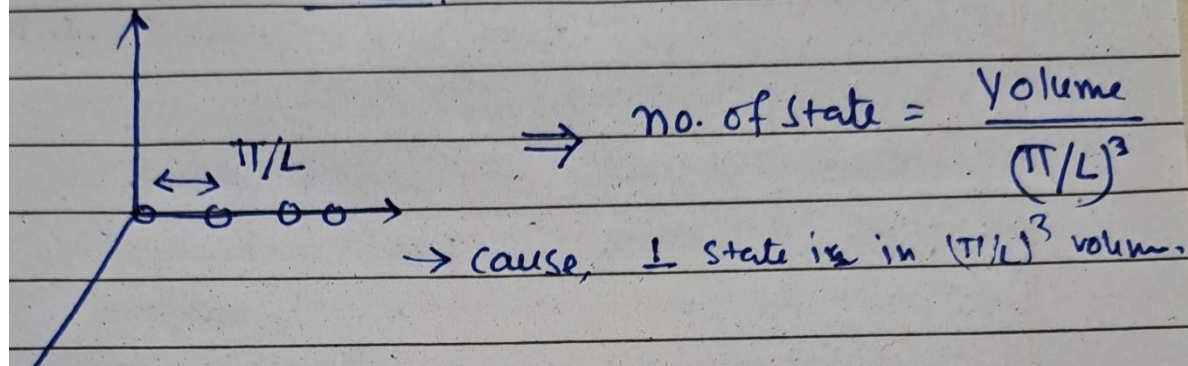 π/L
⇒ no. of state = Volume / (π/L)³
→ cause, 1 state is in (π/L)³ volum.